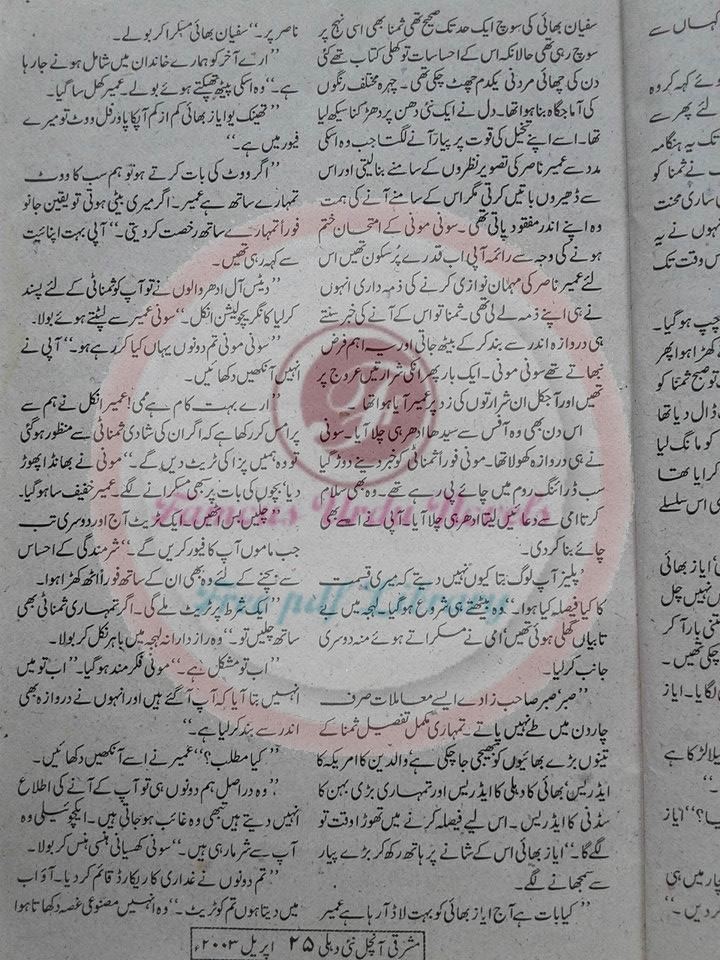 سفیان بھائی کی سوچ ایک حد تک صحیح تھی ثمنا بھی اسی نہج پر
سوچ رہی تھی حالانکہ اس کے احساسات تو کھلی کتاب تھے کئی
دن کی چھائی مردنی یکدم چھٹ چکی تھی۔ چہرہ مختلف رنگوں
کی آماجگاہ بنا ہوا تھا۔ دل نے ایک نئی دھن پر دھڑکنا سیکھ لیا
تھا۔ اسے اپنے تخیل کی قوت پر پیار آنے لگتا جب وہ اسکی
مدد سے عمیر ناصر کی تصویر نظروں کے سامنے بنا لیتی اور اس
سے ڈھیروں باتیں کرتی مگر اس کے سامنے آنے کی ہمت
وہ اپنے اندر مفقود پاتی تھی۔ سونی مونی کے امتحان ختم
ہونے کی وجہ سے رائمہ آپی اب قدرے پُر سکون تھیں اس
لئے عمیر ناصر کی مہمان نوازی کرنے کی ذمہ داری انہوں
نے ہی اپنے ذمہ لے لی تھی۔ ثمنا تو اس کے آنے کی خبر سنتے
ہی دروازہ اندر سے بند کر کے بیٹھ جاتی اور یہ اہم فرض
نبھاتے تھے سونی مونی۔ ایک بار پھر انکی شرارتیں عروج پر
تھیں اور آجکل ان شرارتوں کی زد پر عمیر آیا ہوا تھا۔
اس دن بھی وہ آفس سے سیدھا ادھر ہی چلا آیا۔ سونی
نے ہی دروازہ کھولا تھا۔ مونی فوراً ثمنائی کو خبر دینے دوڑ گیا
سب ڈرائنگ روم میں چائے پی رہے تھے۔ وہ بھی سلام
کرتا امی سے دعائیں لیتا ادھر ہی چلا آیا۔ آپی نے اسے بھی
چائے بنا کر دی۔
'پلیز آپ لوگ بتا کیوں نہیں دیتے کہ میری قسمت
کا کیا فیصلہ کیا ہوا۔'' وہ بیٹھتے ہی شروع ہو گیا۔ لہجہ میں بے
تابیاں گھلی ہوئی تھیں' امی نے مسکراتے ہوئے منہ دوسری
جانب کر لیا۔
''صبر' صبر صاحب زادے ایسے معاملات صرف
چار دن میں طے نہیں پاتے۔ تمہاری مکمل تفصیل ثمنا کے
تینوں بڑے بھائیوں کو بھیجی جا چکی ہے' والدین کا امریکہ کا
ایڈریس' بھائی کا دہلی کا ایڈریس اور تمہاری بڑی بہن کا
سڈنی کا ایڈریس۔ اس لیے فیصلہ کرنے میں تھوڑا وقت تو
لگے گا۔'' ایاز بھائی اس کے شانے پر ہاتھ رکھ کر بڑے پیار
سے سمجھانے لگے۔
''کیا بات ہے آج ایاز بھائی کو بہت لاڈ آ رہا ہے عمیر
ناصر پر۔'' سفیان بھائی مسکرا کر بولے۔
''ارے آخر کو ہمارے خاندان میں شامل ہونے جا رہا
ہے۔'' وہ اسکی پیٹھ تھپکتے ہوئے بولے۔ عمیر کھل سا گیا۔
''تھینک یو ایاز بھائی کم از کم آپکا پاورفل ووٹ تو میرے
فیور میں ہے۔''
''اگر ووٹ کی بات کرتے ہو تو ہم سب کا ووٹ
تمہارے ساتھ ہے عمیر۔ اگر میری بیٹی ہوتی تو یقین جانو
فوراً تمہارے ساتھ رخصت کر دیتی۔'' آپی بہت اپنائیت
سے کہہ رہی تھیں۔
''دیٹس آل ادھر والوں نے تو آپ کو ثمنائی کے لئے پسند
کر لیا کانگریچولیشن انکل۔'' سونی عمیر سے لپٹتے ہوئے بولا۔
''سونی مونی تم دونوں یہاں کیا کر رہے ہو۔'' آپی نے
انہیں آنکھیں دکھائیں۔
''ارے بہت کام ہے ممی! عمیر انکل نے ہم سے
پرامس کر رکھا ہے کہ اگر ان کی شادی ثمنائی سے منظور ہو گئی
تو وہ ہمیں پزا کی ٹریٹ دیں گے۔'' مونی نے بھانڈا پھوڑ
دیا' بچوں کی بات پر بھی مسکرانے لگے۔ عمیر خفیف سا ہو گیا۔
''چلیں بس اٹھیں۔ ایک ٹریٹ آج اور دوسری تب
جب ماموں آپ کا فیور کریں گے۔'' شرمندگی کے احساس
سے بچنے کے لئے وہ بھی ان کے ساتھ فوراً اٹھ کھڑا ہوا۔
''ایک شرط پر ٹریٹ ملے گی۔ اگر تمہاری ثمنائی بھی
ساتھ چلیں تو۔'' وہ رازدارانہ لہجہ میں باہر نکل کر بولا۔
''اب تو مشکل ہے۔'' مونی فکر مند ہو گیا۔ ''اب تو میں
انہیں بتا آیا کہ آپ آ گئے ہیں اور انہوں نے دروازہ بھی
اندر سے بند کر لیا ہے۔''
''کیا مطلب؟'' عمیر نے اسے آنکھیں دکھائیں۔
''وہ دراصل ہم دونوں ہی تو آپ کے آنے کی اطلاع
انہیں دیتے ہیں تبھی وہ غائب ہو جاتی ہیں۔ ایکچوئیلی وہ
آپ سے شرما رہی ہیں۔'' سونی کھسیانی ہنسی ہنس کر بولا۔
''تم دونوں نے غداری کا ریکارڈ قائم کر دیا۔ آؤ اب
میں دیتا ہوں تم کو ٹریٹ۔'' وہ انہیں مصنوعی غصہ دکھاتا ہوا
مشرقی آنچل نئی دہلی ۲۵ اپریل ۲۰۰۳ء
Famous Urdu Novels
Free pdf Library